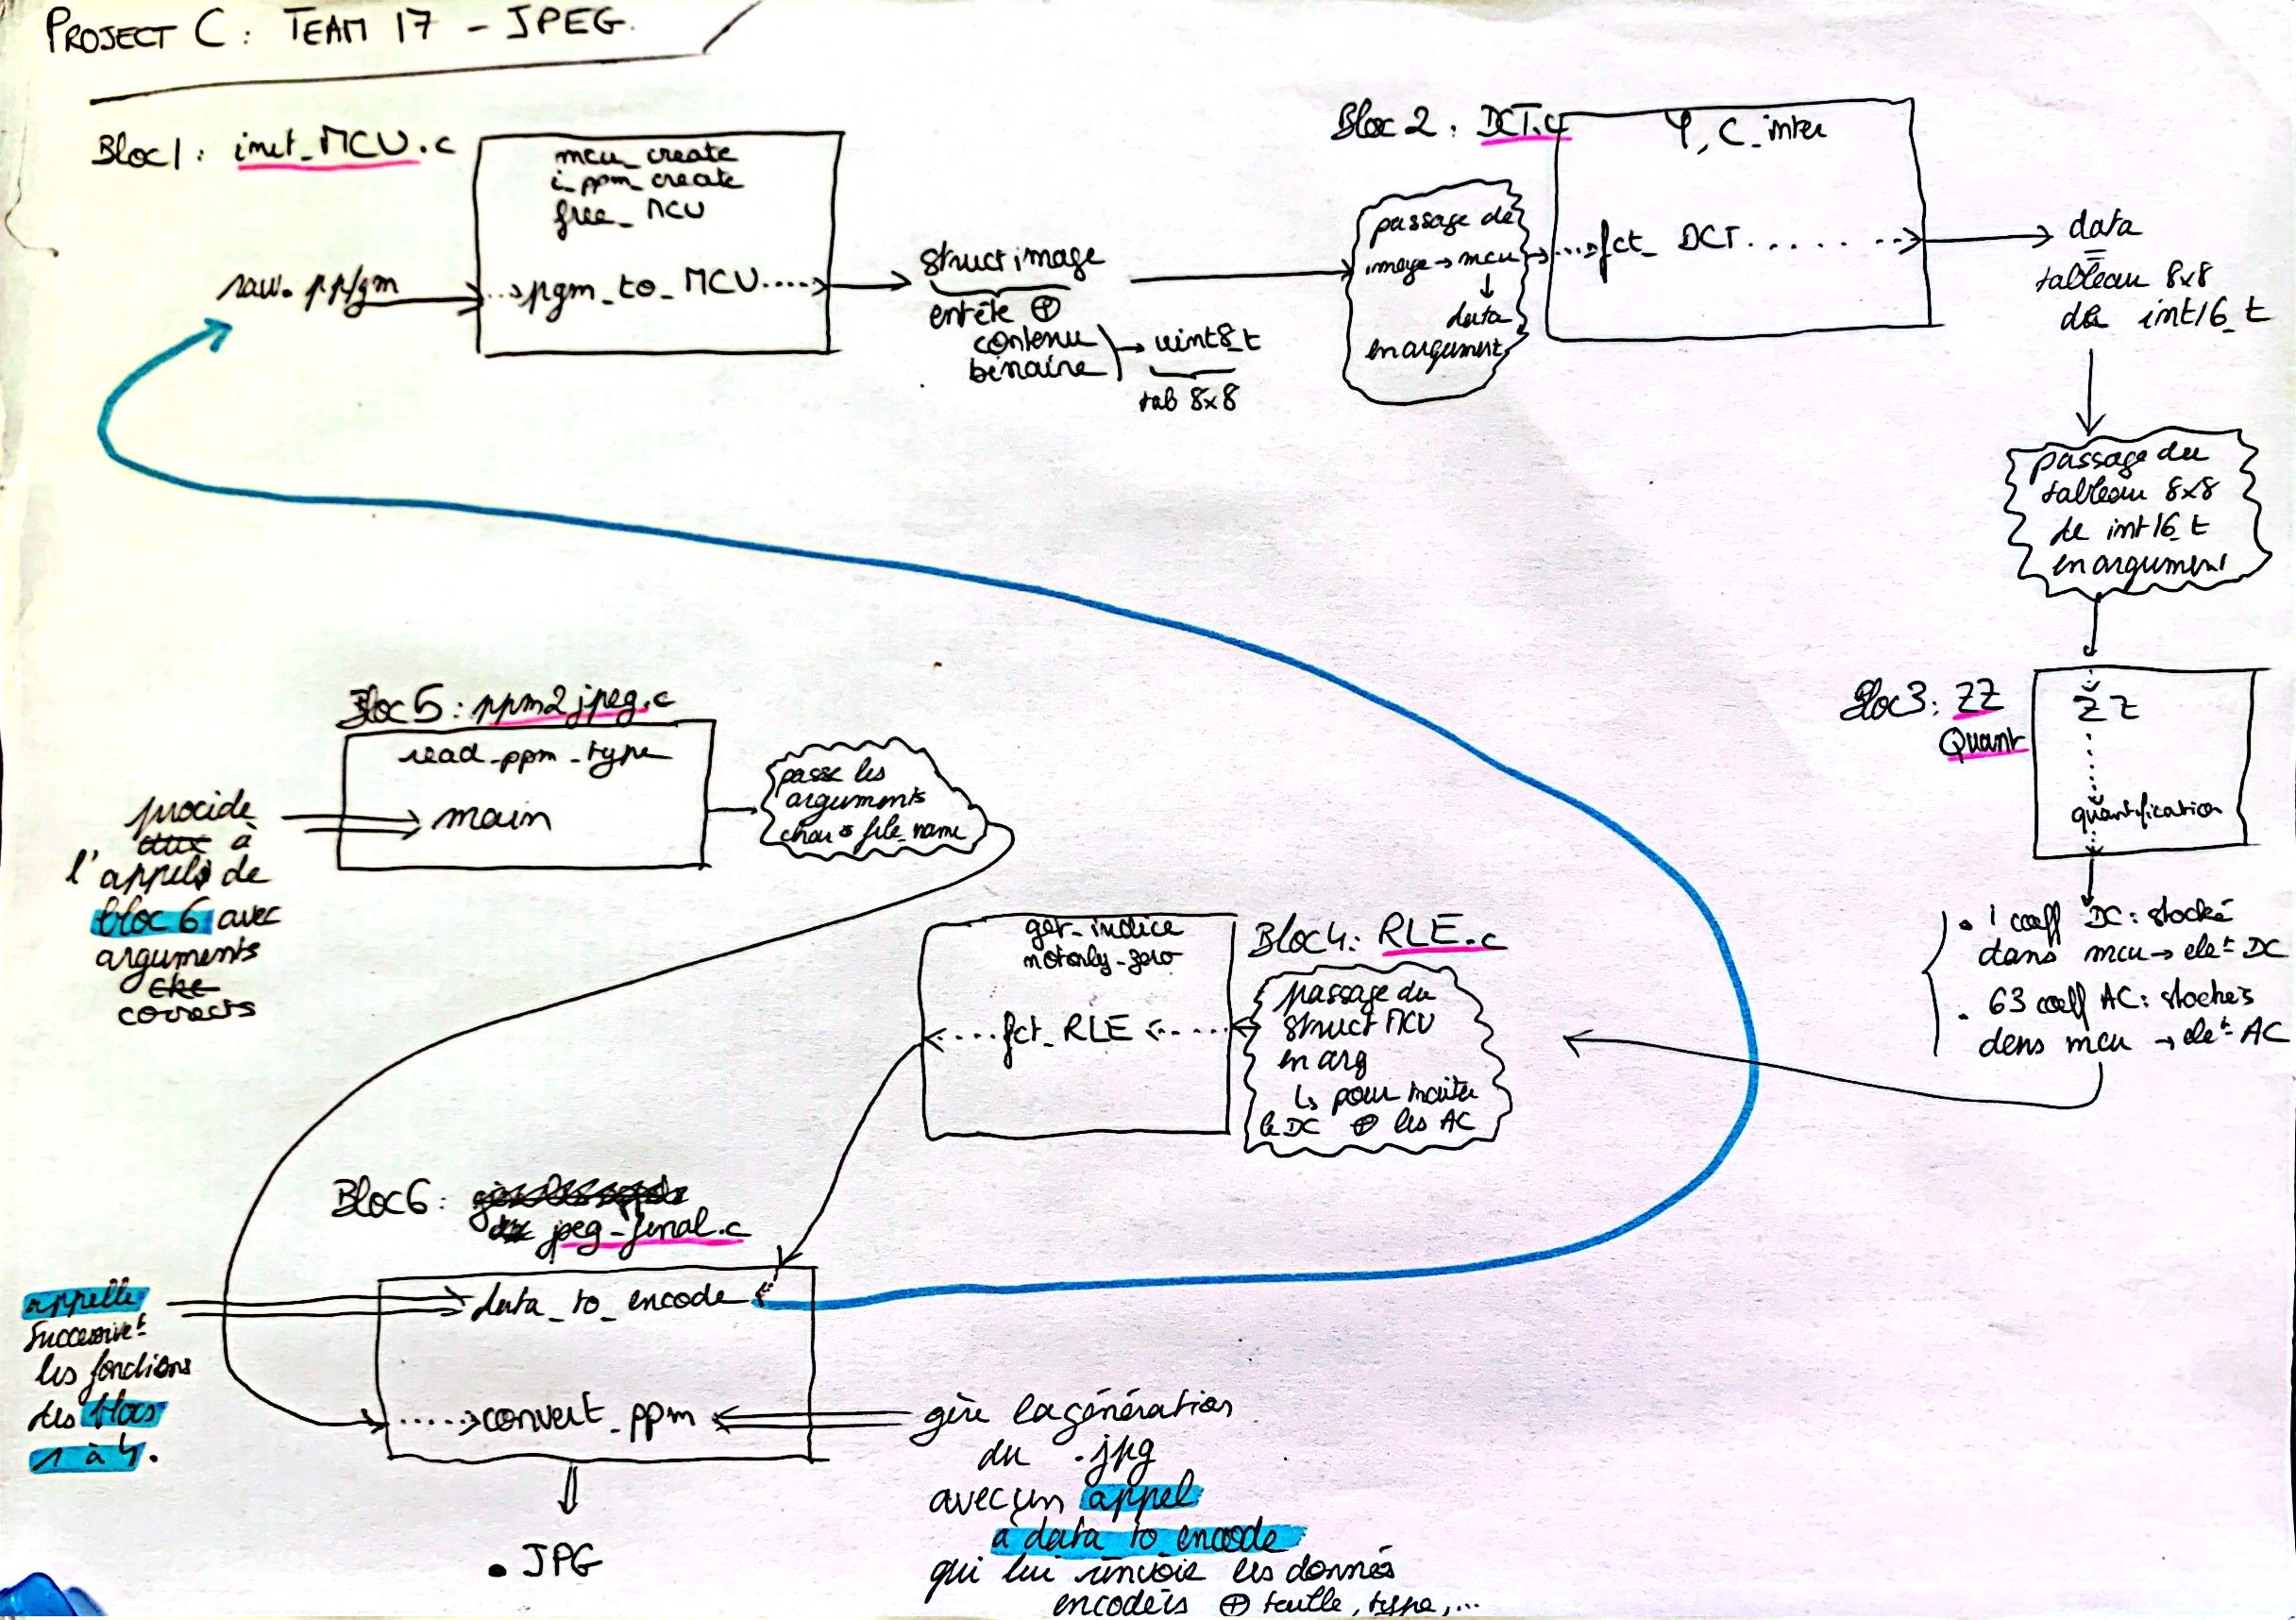 PROJECT C: TEAM 17 - JPEG.
Bloc 1: init_MCU.c
mcu_create
i_ppm_create
free_MCU
raw. pp/gm
...>pgm_to_MCU....>
struct image
entête ⊕
contenu
binaire
→ uint8_t
tab 8x8
Bloc 2: DCT.c
Y, C_inter
passage de
image → mcu
↓
data
en argument
...>fct_DCT.......>
data
=
tableau 8x8
de int16_t
passage du
tableau 8x8
de int16_t
en argument
Bloc 3: ZZ
Quant
ZZ
quantification
. 1 coeff DC: stocké
dans mcu → eleᵗ DC
. 63 coeff AC: stockés
dans mcu → eleᵗ AC
Bloc 4: RLE.c
passage du
struct MCU
en arg
↳ pour traiter
le DC ⊕ les AC
get_indice
notonly_zero
<....fct_RLE <....
Bloc 5: ppm2jpeg.c
read_ppm_type
main
procède
à
l'appel de
bloc 6 avec
arguments
corrects
passe les
arguments
char* file_name
Bloc 6:
jpeg_final.c
data_to_encode
.....>convert_ppm
appelle
successiveᵗ
les fonctions
des blocs
1 à 4.
.JPG
gère la génération
du .jpg
avec un appel
à data_to_encode
qui lui renvoie les données
encodées ⊕ taille, type, ...